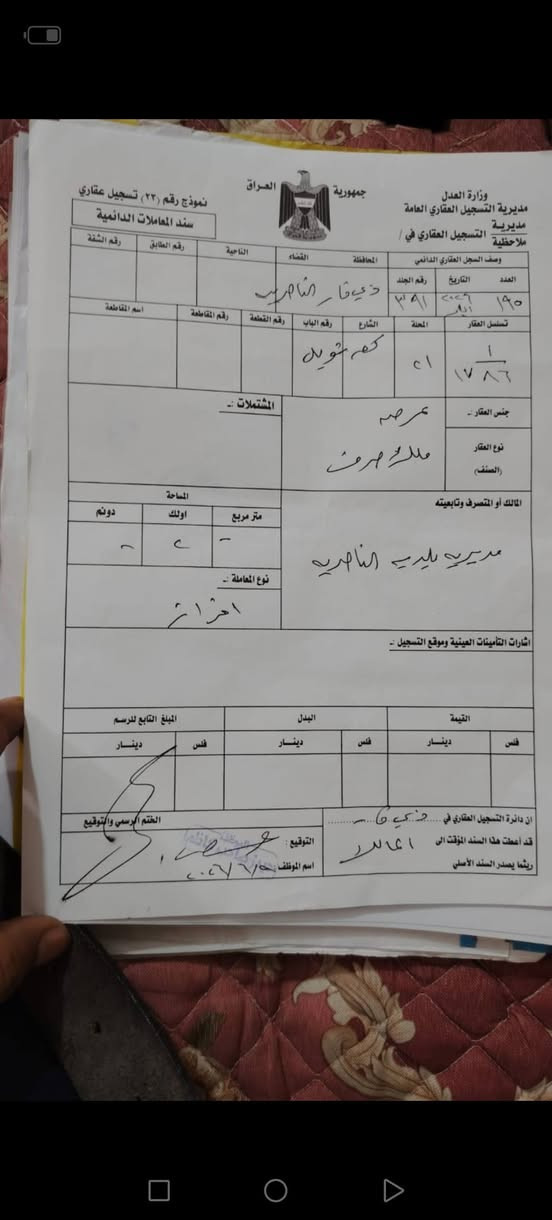 جمهورية العراق
وزارة العدل
مديرية التسجيل العقاري العامة
مديرية
ملاحظية
التسجيل العقاري في /
نموذج رقم (٢٣) تسجيل عقاري
سند المعاملات الدائمية
وصف السجل العقاري الدائمي
المحافظة
القضاء
الناحية
رقم الطابق
رقم الشقة
العدد
التاريخ
رقم الجلد
ذي قار
الناصرية
١٩٥
٣٩١
تسلسل العقار
المحلة
الشارع
رقم الباب
رقم القطعة
رقم المقاطعة
اسم المقاطعة
١
١٧٨٦
٢١
شويل
جنس العقار :ـ
عرصه
المشتملات :ـ
نوع العقار
(الصنف)
ملك صرف
المالك أو المتصرف وتابعيته
مديريه بلديه الناصريه
المساحة
متر مربع
اولك
دونم
-
٢
-
نوع المعاملة :ـ
افراز
اشارات التأمينات العينية وموقع التسجيل :ـ
القيمة
البدل
المبلغ التابع للرسم
فلس
دينـار
فلس
دينـار
فلس
دينـار
ان دائرة التسجيل العقاري في ذي قار
قد أعطت هذا السند المؤقت الى
ريثما يصدر السند الأصلي
الختم الرسمي والتوقيع
التوقيع :
اسم الموظف